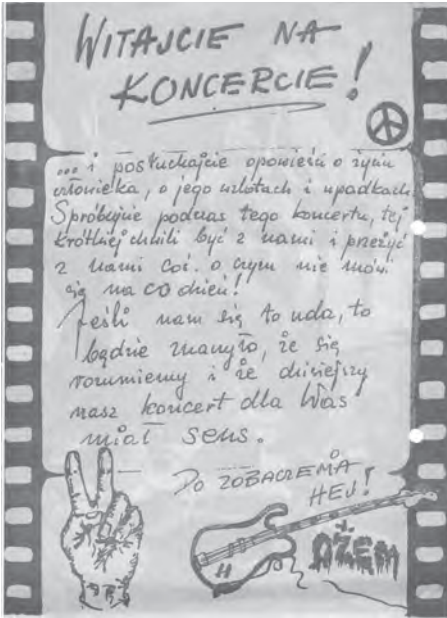 WITAJCIE NA
KONCERCIE!
... i posłuchajcie opowieści o życiu
człowieka, o jego wzlotach i upadkach.
Spróbujcie podczas tego koncertu, tej
krótkiej chwili być z nami i przeżyć
z nami coś, o czym nie mówi
się na co dzień!
Jeśli nam się to uda, to
będzie znaczyło, że się
rozumiemy i że dzisiejszy
nasz koncert dla Was
miał sens.
DO ZOBACZENIA
HEJ!
H
DŻEM